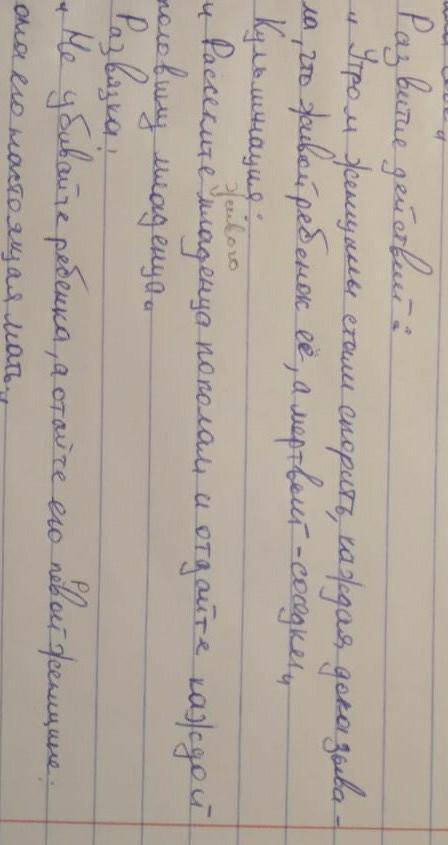 Развитие действий:
„ Утром женщины стали спорить, каждая доказыва-
ла, что живой ребенок её, а мертвый - соседки„
Кульминация:
живого
„ Рассеките младенца пополам и отдайте каждой
половину младенца„
Развязка:
„ Не убивайте ребенка, а отдайте его первой женщине:
она его настоящая мать„